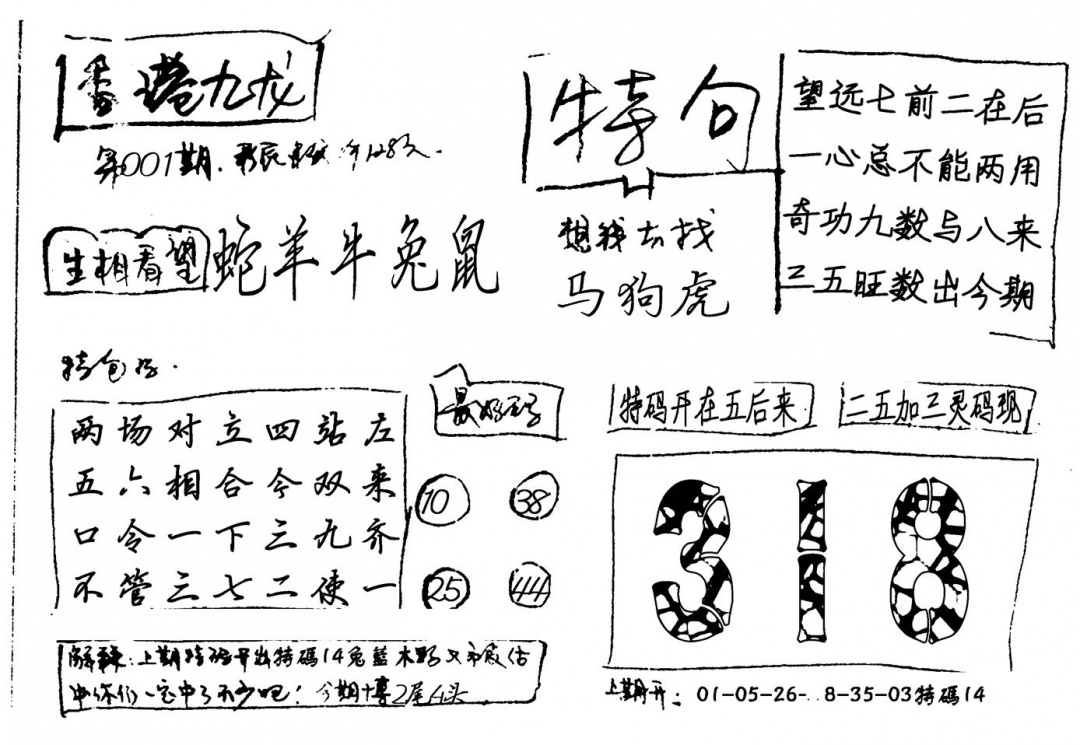 香港九龙
第001期.
生相看望
蛇羊牛兔鼠
特句
想钱去找
马狗虎
望远七前二在后
一心总不能两用
奇功九数与八来
三五旺数出今期
特包
两场对立四站左
五六相合今双来
口令一下三九齐
不管三七二使一
最好
10 38
25 44
特码开在五后来
二五加三灵码现
318
解释:上期特码开出特碼14兔藍木野
中你们一定中了不少吧!今期博2尾4头
上期开: 01-05-26-..8-35-03特碼14